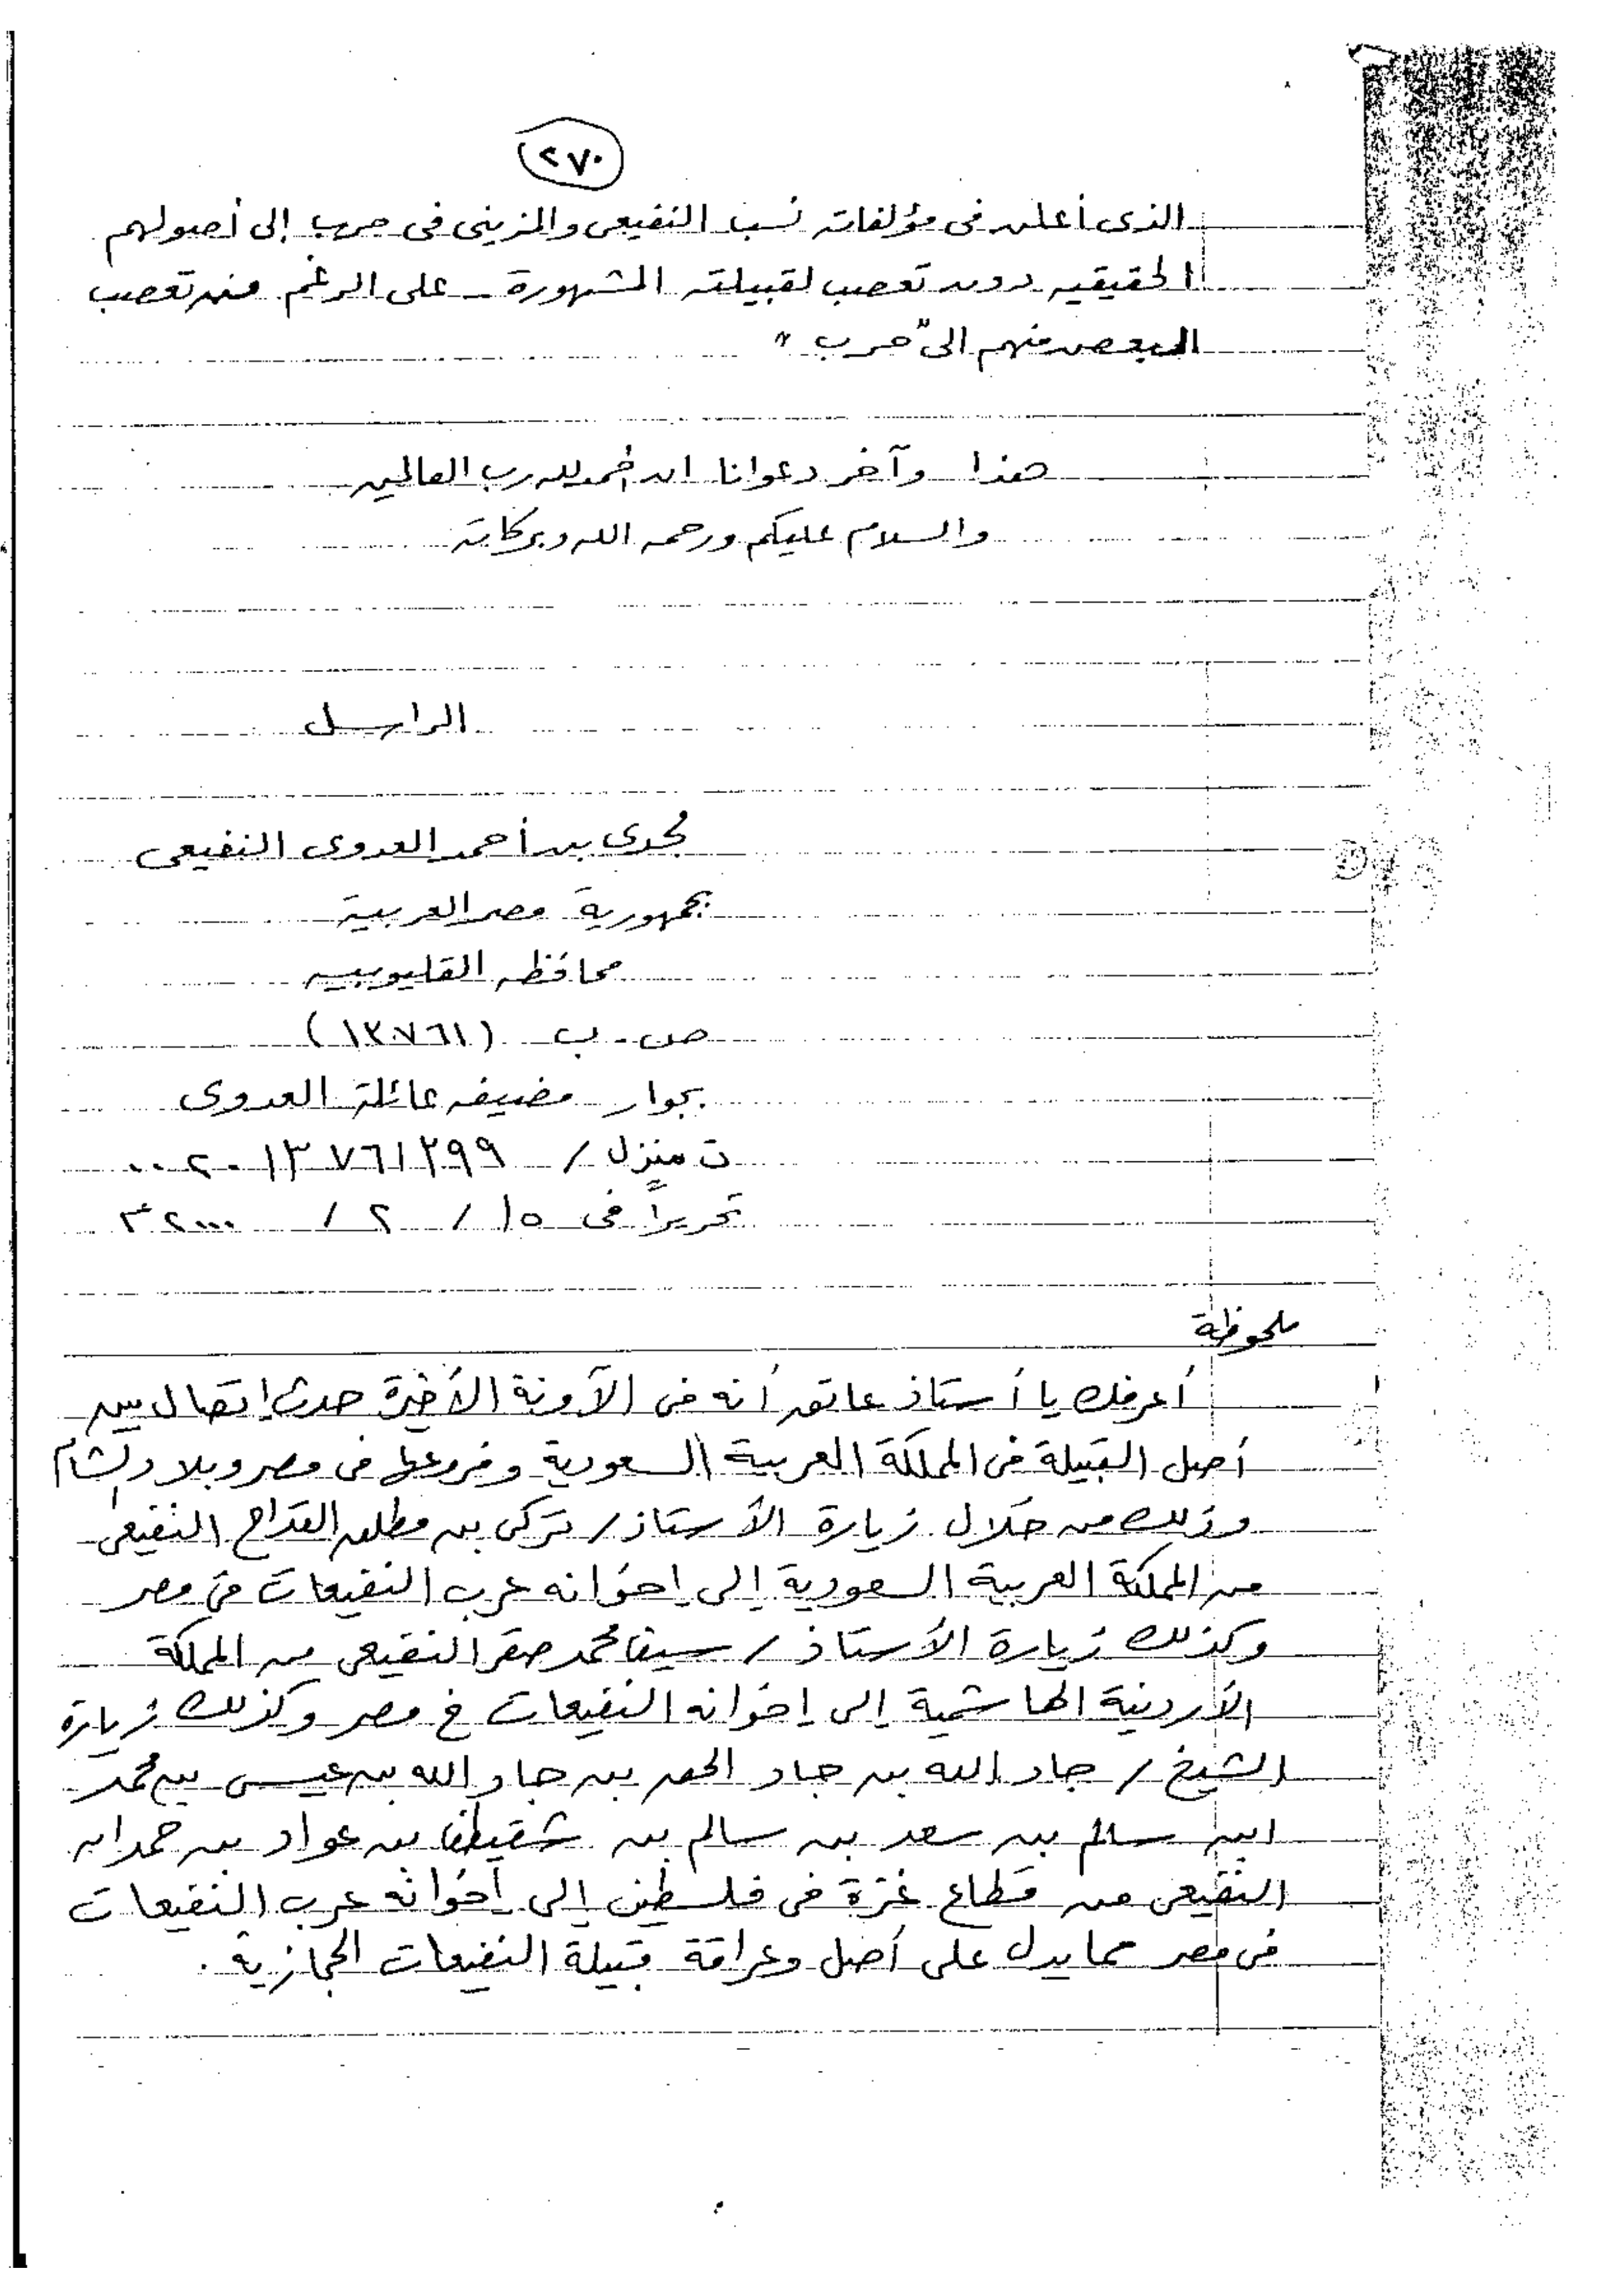 ٢٧٠
الذى أعلن فى مؤلفاته نسب النفيعى والمزينى فى حرب إلى أصولهم
الحقيقيه دون تعصب لقبيلته المشهورة - على الرغم من تعصب
البعض منهم الى "حرب"
هذا وآخر دعوانا ان الحمد لله رب العالمين
والسلام عليكم ورحمه الله وبركاته
الراسل
مجدى بن أحمد العدوى النفيعى
جمهورية مصر العربية
محافظه القليوبيه
ص . ب (١٣٧٦١)
بجوار مضيفه عائلة العدوى
ت منزل / ٠٠٢٠١٣٧٦١٢٩٩
تحريراً فى ١٥ / ٢ / ٢٠٠٠م
ملحوظة
أعرفك يا أستاذ عاتق أنه فى الآونة الأخيرة حدث إتصال بين
أصل القبيلة فى المملكة العربية السعودية وفروعها فى مصر وبلاد الشام
وذلك من خلال زيارة الأستاذ / تركى بن مطلق القداح النفيعى
من المملكة العربية السعودية إلى إخوانه عرب النفيعات فى مصر
وكذلك زيارة الأستاذ / سيف محمد صقر النفيعى من المملكة
الأردنية الهاشمية إلى إخوانه النفيعات فى مصر وكذلك زيارة
الشيخ / جاد الله بن جاد الحق بن جاد الله بن عيسى بن محمد
ابن سالم بن سعد بن سالم بن بن عواد بن حمدان
النفيعى من قطاع غزة فى فلسطين إلى أخوانه عرب النفيعات
فى مصر مما يدل على أصل وعراقة قبيلة النفيعات الحجازية .